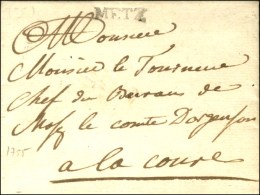 METZ
Monsieur
Monsieur le Tourneur
Chef du Bureau de
Mgr le comte Dargenson
1755
a la coure